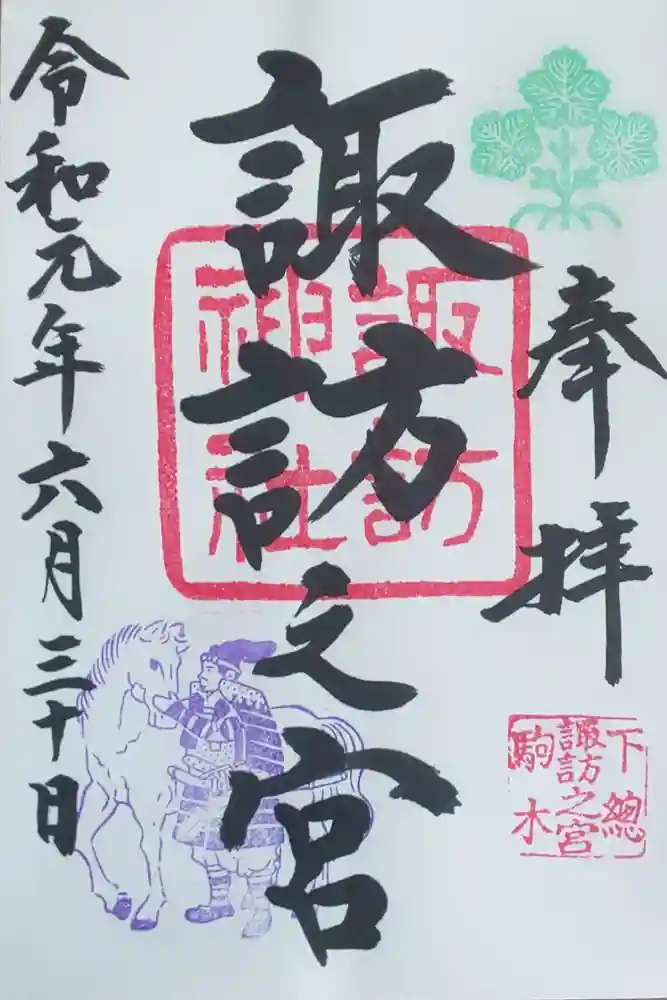 奉拝
諏訪之宮
令和元年六月三十日
諏訪
神社
下總
諏訪之宮
駒木